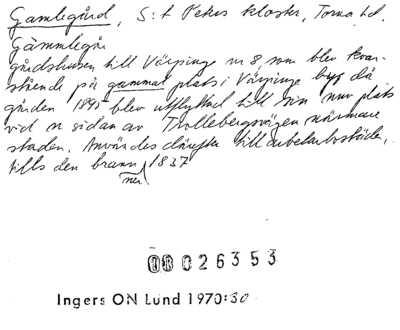 Gamlegård, S:t Peters kloster, Torna hd.
Gammlegår
gårdshusen till Värpinge nr 8, som blev kvar-
stående på gammal plats i Värpinge by, då
gården 1841 blev utflyttad till sin nuv. plats
vid n sidan av Trollebergsvägen närmare
staden. Användes därefter till arbetarbostäder,
tills den brann ner 1837
00026353
Ingers ON Lund 1970:30